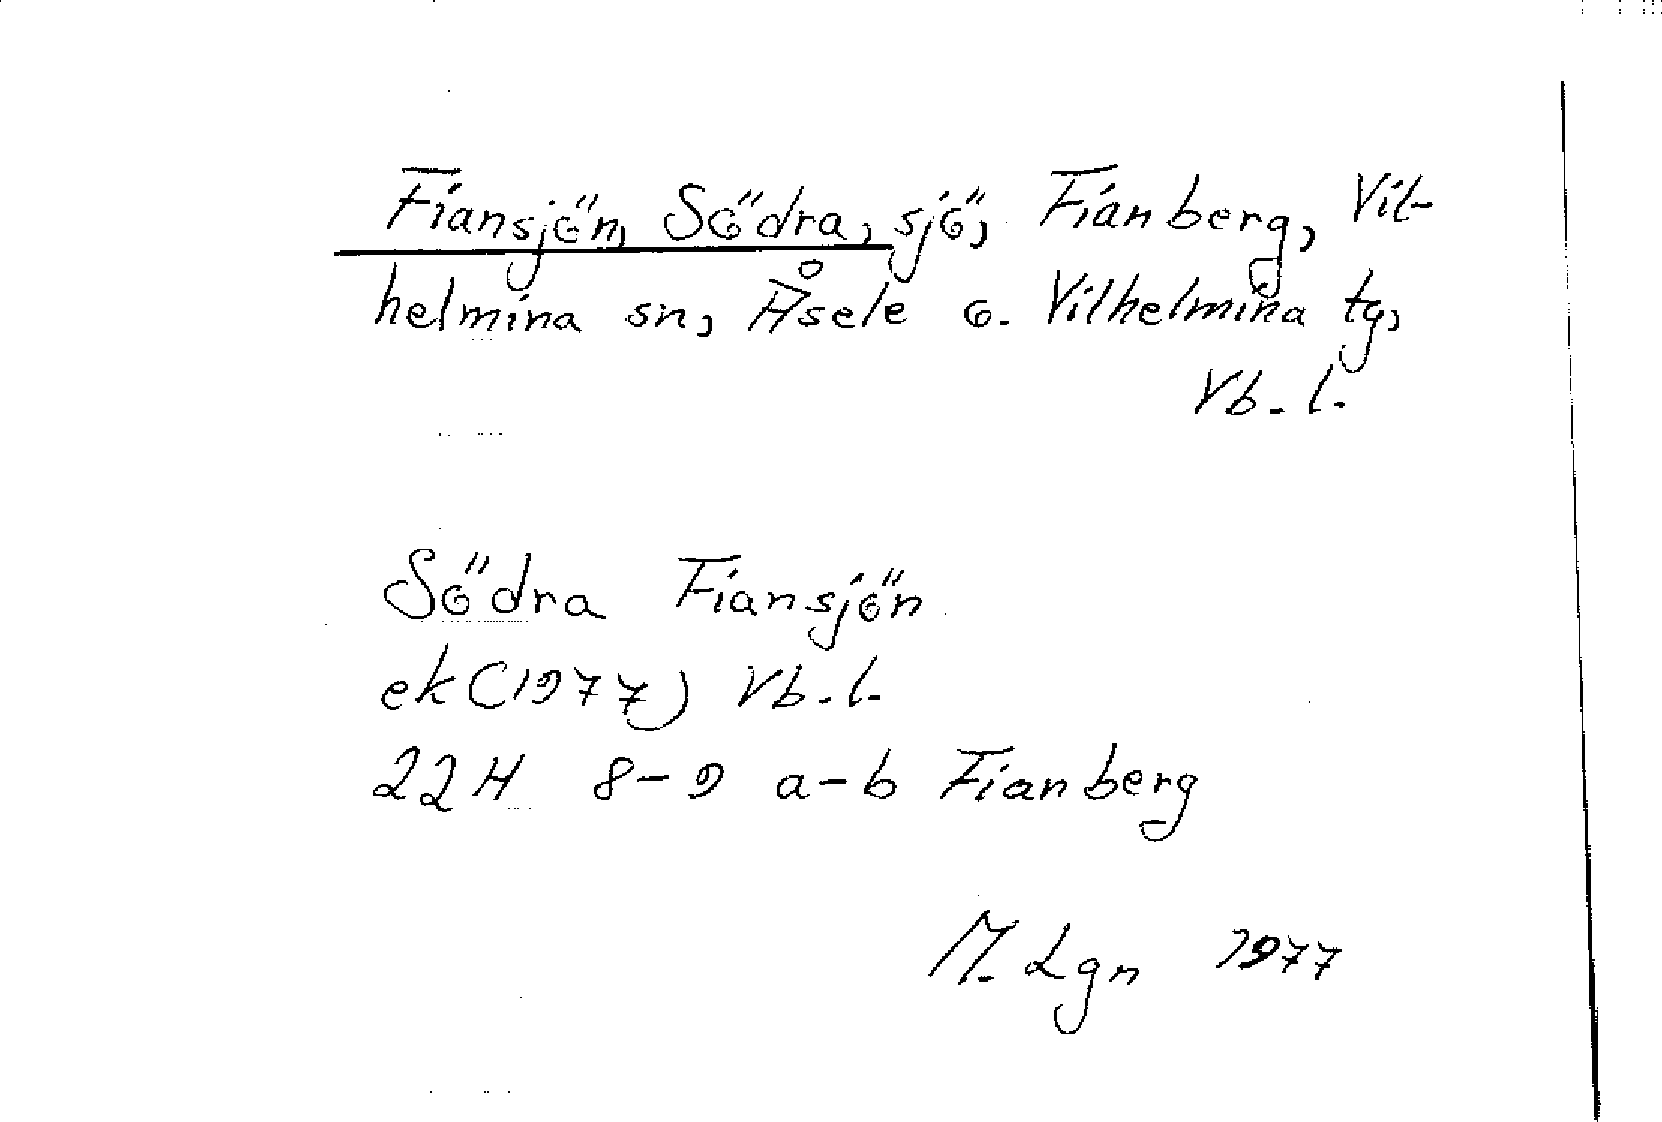 Fiansjön, Södra, sjö, Fianberg, Vil-
helmina sn, Åsele o. Vilhelmina tg,
Vb. l.
Södra Fiansjön
ek (1977) Vb. l.
22H 8-9 a-b Fianberg
M. Lgn 1977